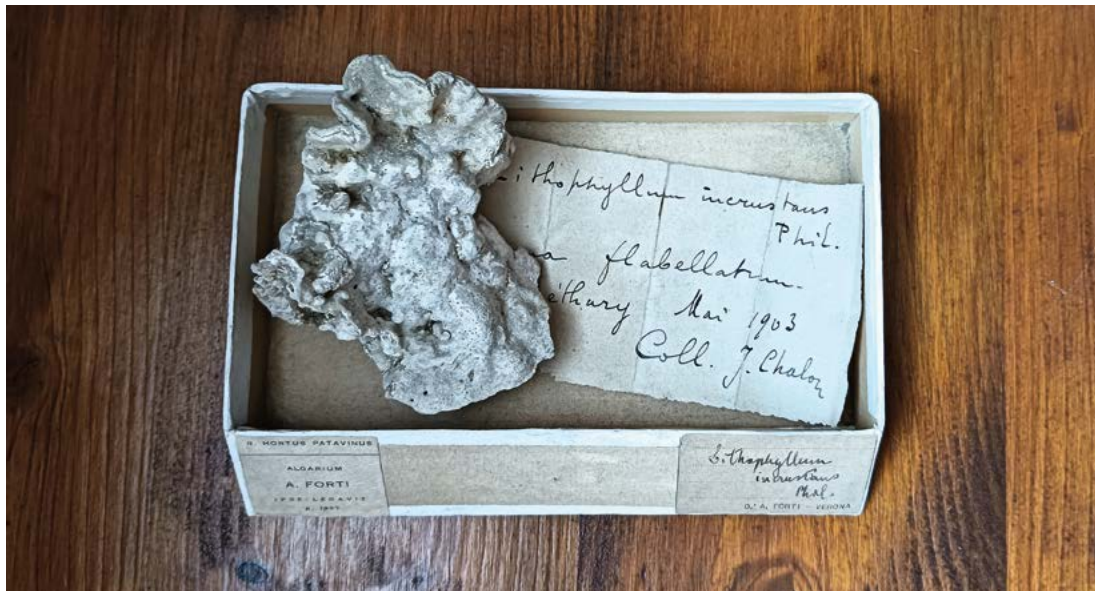 Lithophyllum incrustans
Phil.
flabellatum
éthary Mai 1903
Coll. J. Chalon
R. HORTUS PATAVINUS
ALGARIUM
A. FORTI
IPSE LEGAVIT
Lithophyllum
incrustans
Phil.
D.r A. FORTI - VERONA